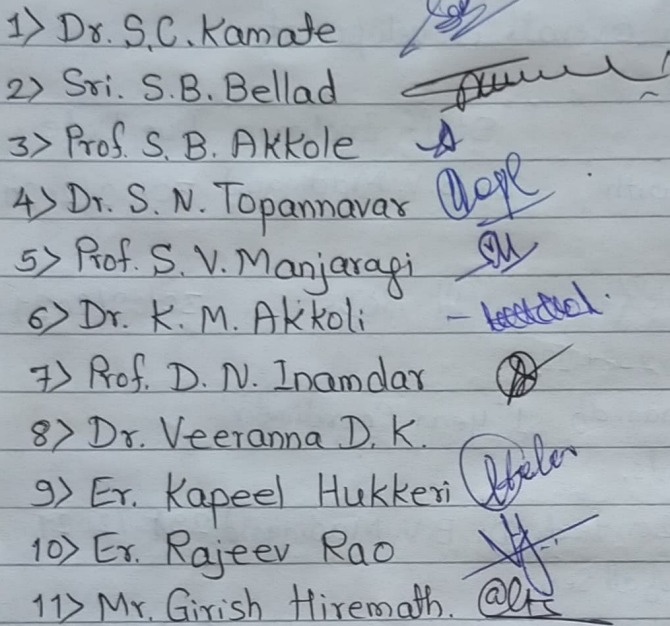 1> Dr. S.C. Kamate
2> Sri. S.B. Bellad
3> Prof. S. B. Akkole
4> Dr. S. N. Topannavar
5> Prof. S. V. Manjaragi
6> Dr. K. M. Akkoli
7> Prof. D. N. Inamdar
8> Dr. Veeranna D. K.
9> Er. Kapeel Hukkeri
10> Er. Rajeev Rao
11> Mr. Girish Hiremath.